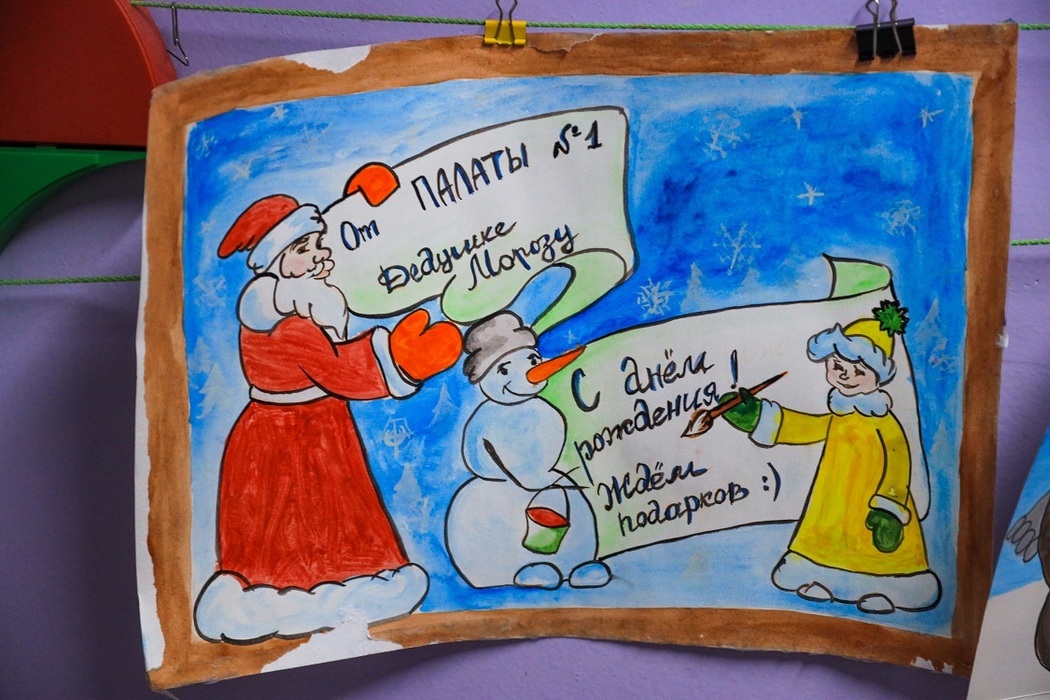 От ПАЛАТЫ №1
Дедушке
Морозу
С днём
рождения!
Ждём
подарков :)